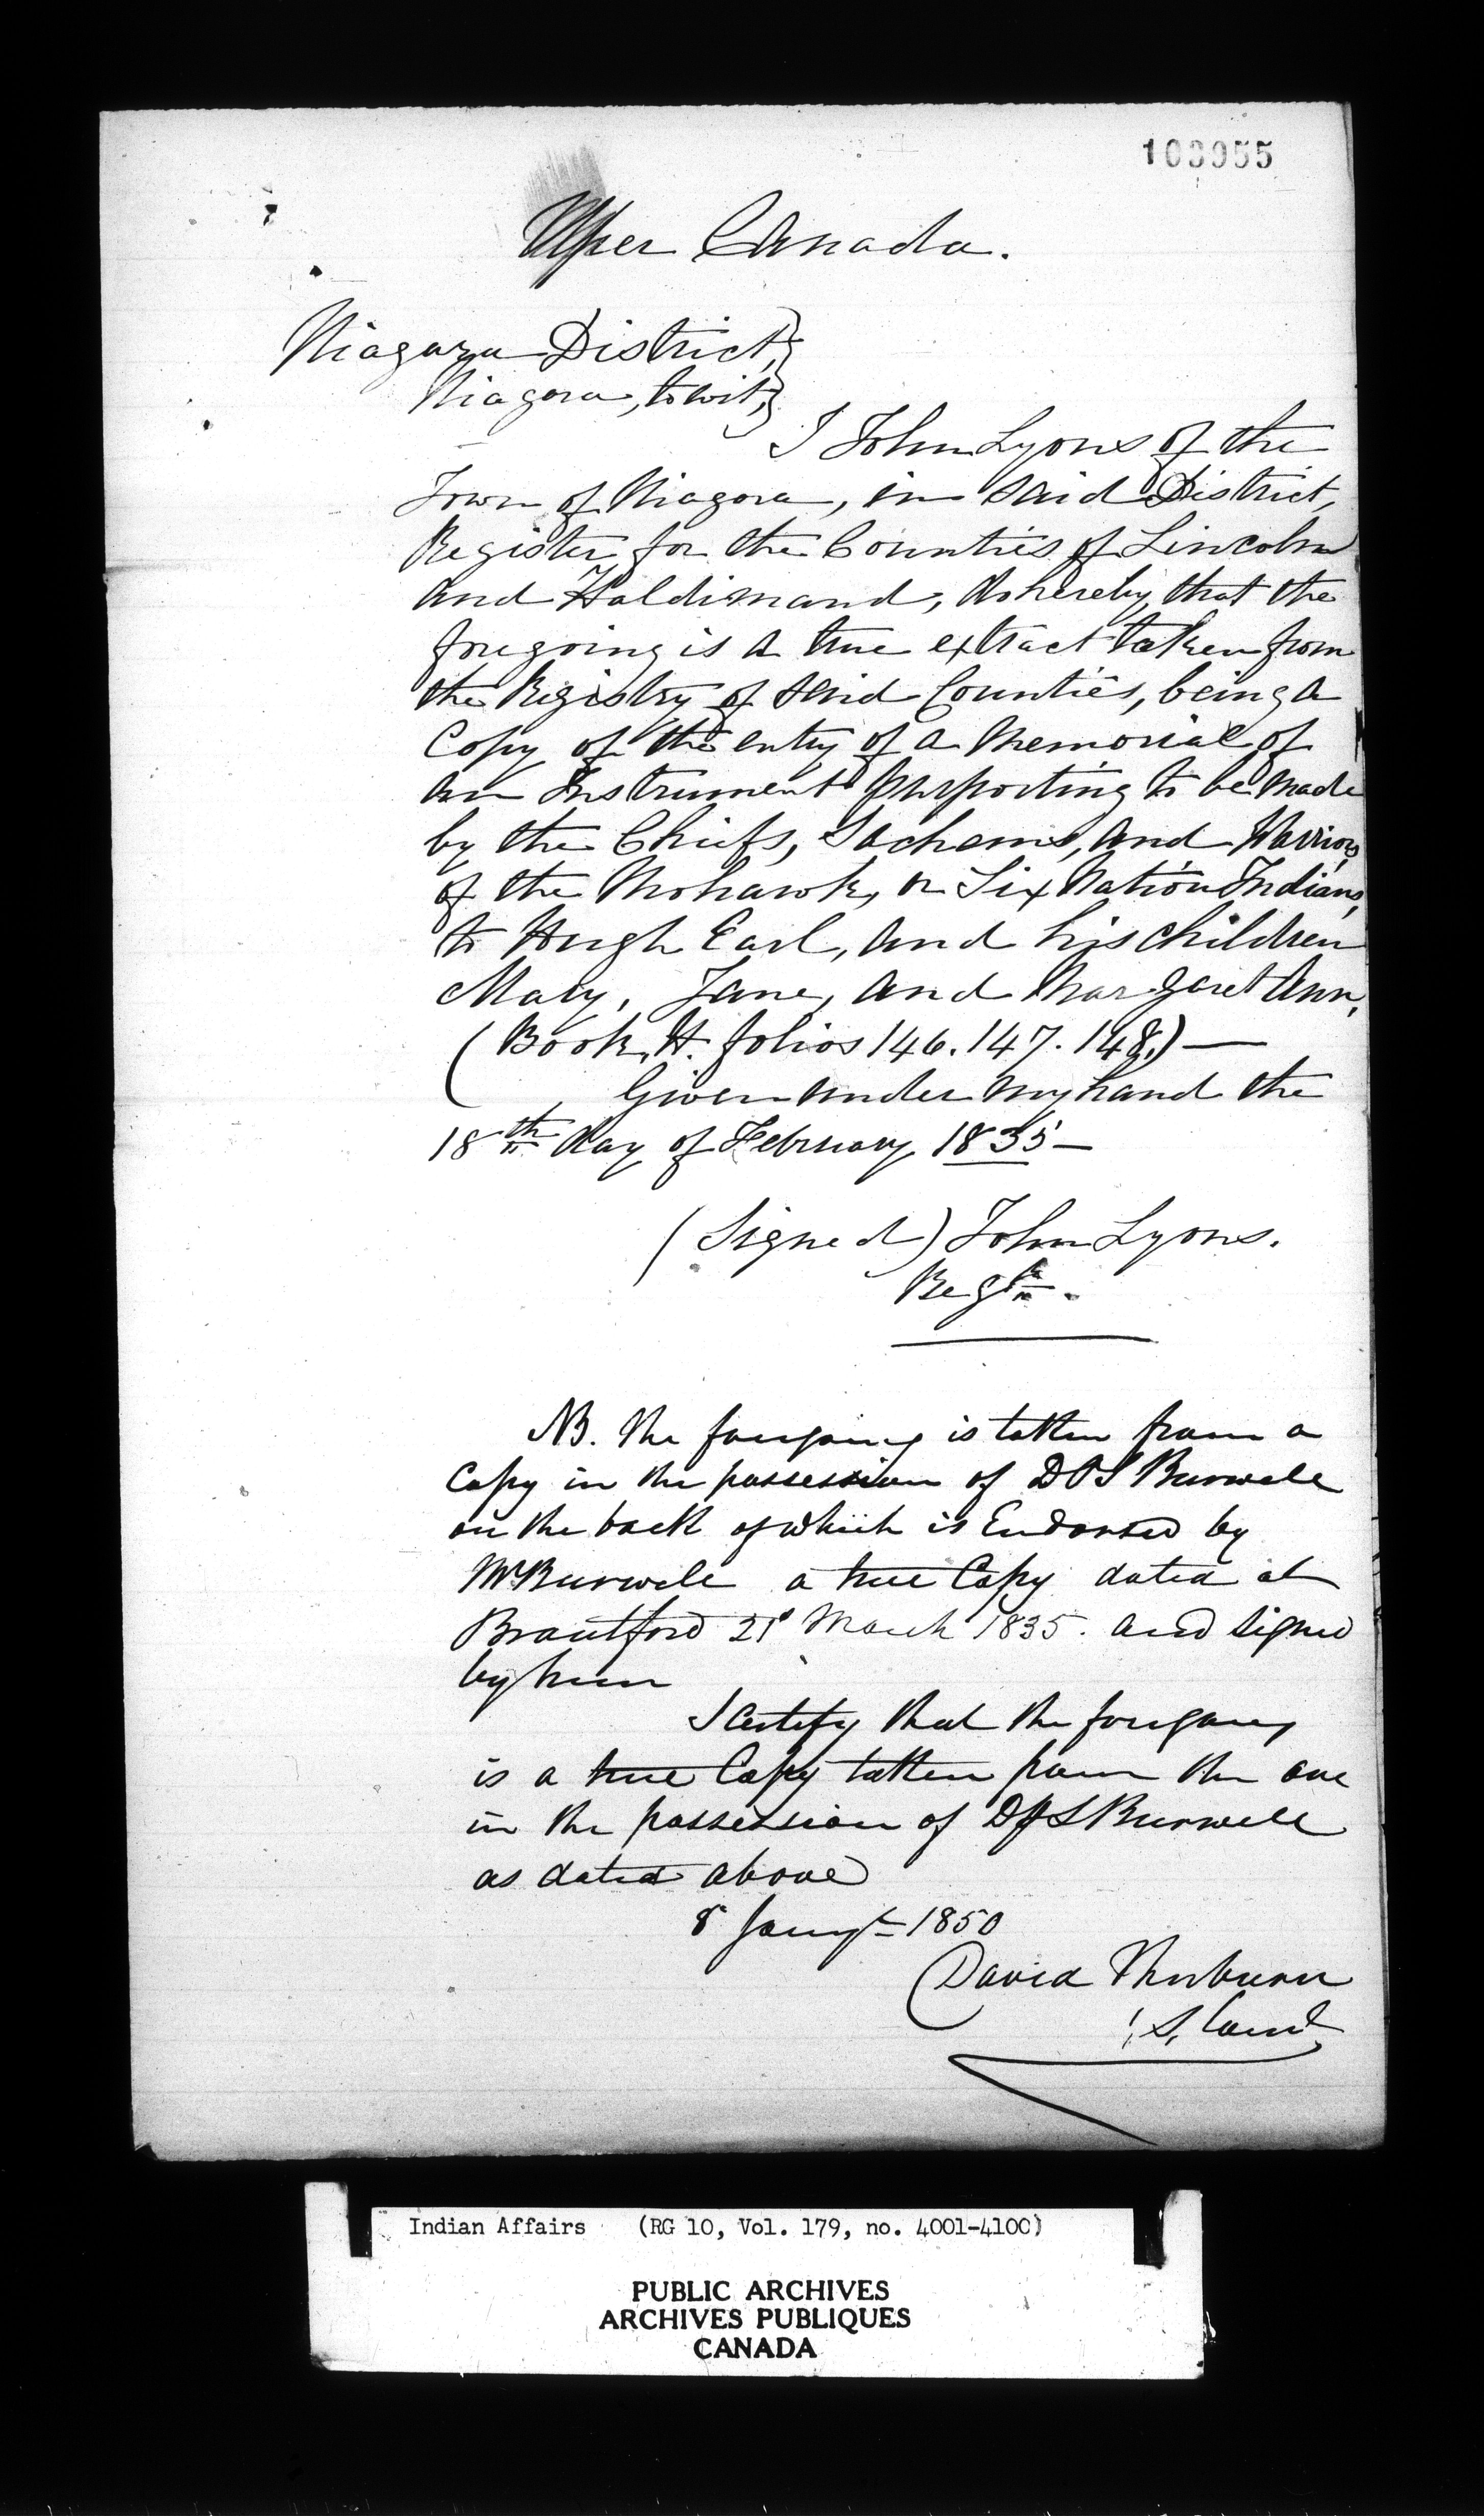 103955
Upper Canada.
Niagara District,}
Niagara, to wit,}
I John Lyons of the
Town of Niagara, in said District,
Register for the Counties of Lincoln
and Haldimand, do hereby, that the
foregoing is a true extract taken from
the Registry of said Counties, being a
Copy of the entry of a Memorial of
an Instrument purporting to be made
by the Chiefs, Sachems, and Warriors
of the Mohawk, or Six Nation Indians,
to Hugh Earl, and his children
Mary, Jane, and Margaret Ann,
(Book, H. folios 146. 147. 148.) —
Given under my hand the
18th day of February 1835 —
(Signed) John Lyons.
Regtr.
NB. The foregoing is taken from a
Copy in the possession of
Burwell
on the back of which is Endorsed by
Mr Burwell a true Copy dated at
Brantford 21st March 1835. and signed
by him
I certify that the foregoing
is a true Copy taken from the one
in the possession of
Burwell
as dated above
8 Jany 1850
David Thorburn
Indian Affairs (RG 10, Vol. 179, no. 4001-4100)
PUBLIC ARCHIVES
ARCHIVES PUBLIQUES
CANADA